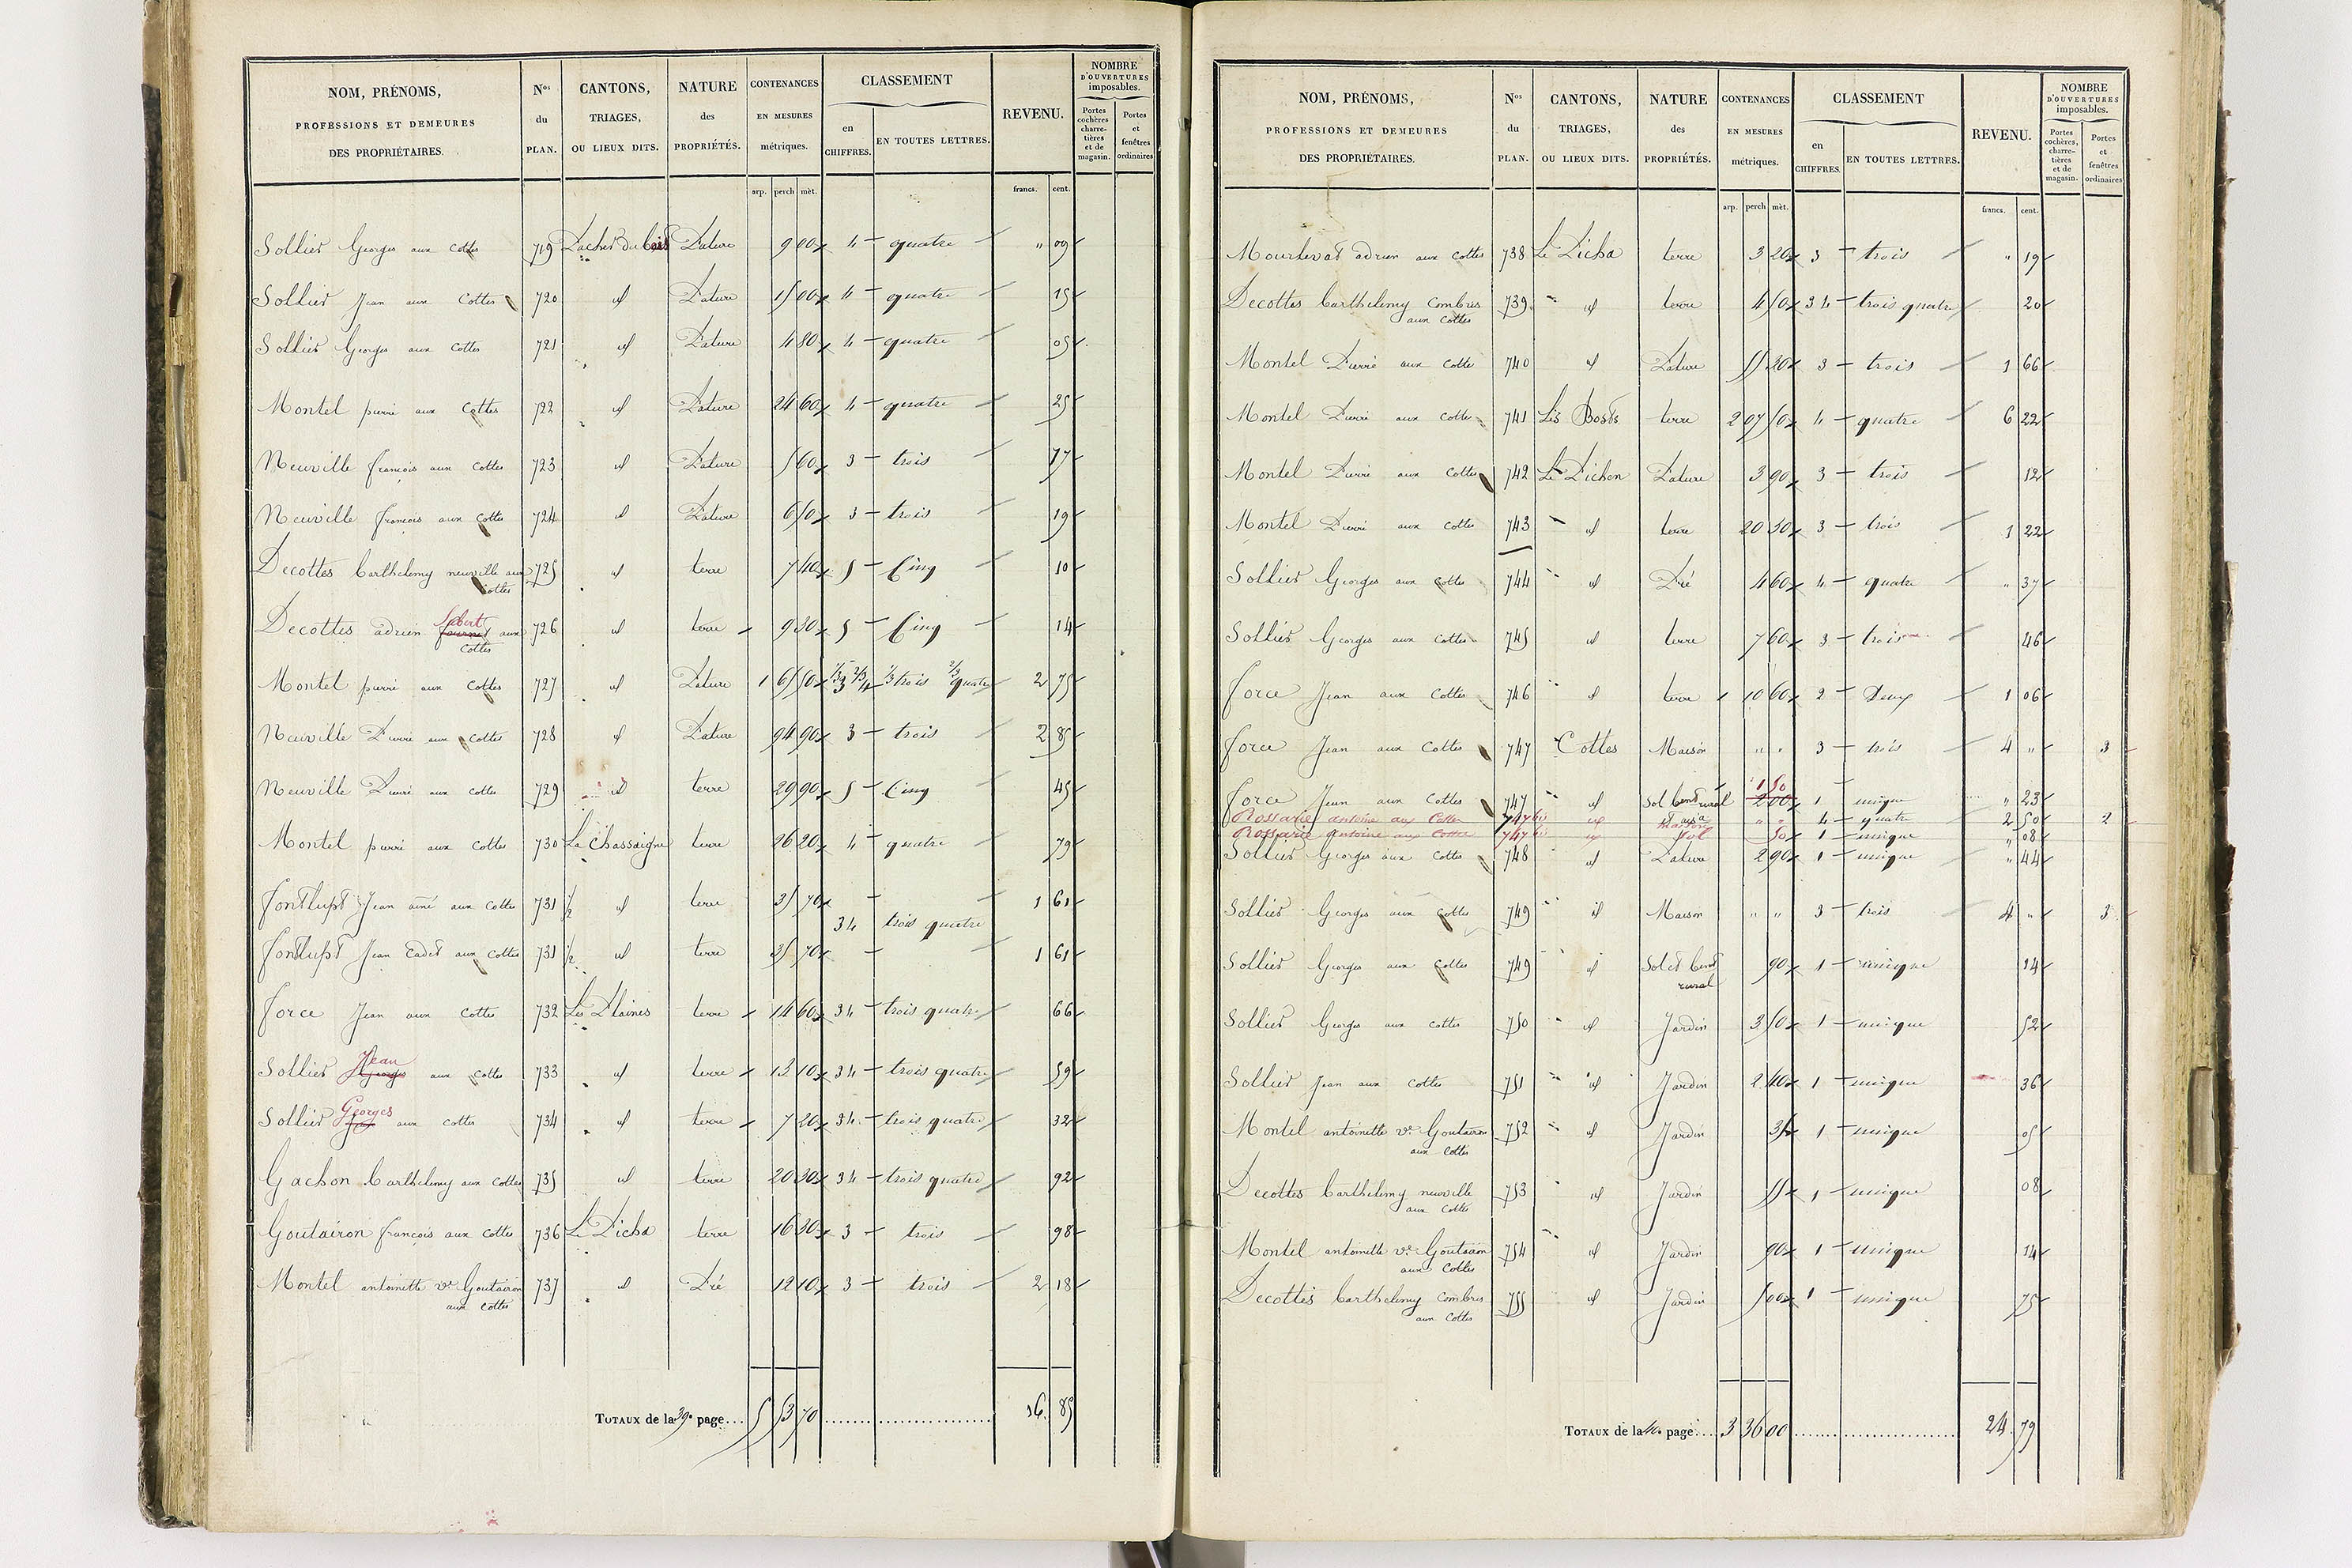 NOM, PRÉNOMS, Nos CANTONS, NATURE CONTENANCES CLASSEMENT REVENU. NOMBRE D'OUVERTURES imposables.
PROFESSIONS ET DEMEURES du TRIAGES, des EN MESURES en EN TOUTES LETTRES. Portes cochères charre-tières et de magasin. Portes et fenêtres ordinaires
DES PROPRIÉTAIRES. PLAN. OU LIEUX DITS. PROPRIÉTÉS. métriques. CHIFFRES.
arp. perch mèt. francs. cent.
Sollier Georges aux Cottes 719 Pature 9 00 4 quatre " 09
Sollier Jean aux Cottes 720 id Pature 15 00 4 quatre 15
Sollier Georges aux Cottes 721 id Pature 4 80 4 quatre 05
Montel pierre aux Cottes 722 id Pature 24 60 4 quatre 25
Neuville françois aux Cottes 723 id Pature 5 60 3 trois 17
Neuville françois aux Cottes 724 id Pature 6 50 3 trois 19
Decottes barthelemy neuville aux 725 id terre 7 40 5 Cinq 10
Cottes
Decottes adrien fournet aux 726 id terre 9 30 5 Cinq 14
Cottes
Montel pierre aux Cottes 727 id Pature 1 65 50 1/3 3 2/3 4 1/3 trois 2/3 quatre 2 75
Neuville Pierre aux Cottes 728 id Pature 94 90 3 trois 2 85
Neuville Pierre aux cottes 729 id terre 29 90 5 Cinq 45
Montel pierre aux Cottes 730 La Chassaigne terre 26 20 4 quatre 79
fontlupt Jean ainé aux Cottes 731 1/2 id terre 35 70 1 61
34 trois quatre
fontlupt Jean Cadet aux Cottes 731 1/2 id terre 35 70 1 61
force Jean aux Cottes 732 Les Plaines terre 14 60 34 trois quatre 66
Jean
Sollier Georges aux Cottes 733 id terre 13 10 34 trois quatre 59
Georges
Sollier Jean aux cottes 734 id terre 7 20 34 trois quatre 32
Gachon barthelemy aux Cottes 735 id terre 20 30 34 trois quatre 92
Goutairon françois aux Cottes 736 Le Picha terre 16 30 3 trois 98
Montel antoinette ve Goutairon 737 id Pré 12 10 3 trois 2 18
aux Cottes
TOTAUX de la 39e page... 5 53 70 16 85
NOM, PRÉNOMS, Nos CANTONS, NATURE CONTENANCES CLASSEMENT REVENU. NOMBRE D'OUVERTURES imposables.
PROFESSIONS ET DEMEURES du TRIAGES, des EN MESURES en EN TOUTES LETTRES. Portes cochères, charre-tières et de magasin. Portes et fenêtres ordinaires
DES PROPRIÉTAIRES. PLAN. OU LIEUX DITS. PROPRIÉTÉS. métriques. CHIFFRES.
arp. perch mèt. francs. cent.
Mourlevat adrien aux Cottes 738 Le Picha terre 3 20 3 trois " 19
Decottes barthelemy Combris 739 id terre 4 50 34 trois quatre 20
aux Cottes
Montel Pierre aux Cotte 740 id Pature 55 30 3 trois 1 66
Montel Pierre aux Cottes 741 Les Bosts terre 2 07 50 4 quatre 6 22
Montel Pierre aux Cottes 742 Le Pichon Pature 3 90 3 trois 12
Montel Pierre aux Cottes 743 id terre 20 30 3 trois 1 22
Sollier Georges aux Cottes 744 id Pré 4 60 4 quatre " 37
Sollier Georges aux Cottes 745 id terre 7 60 3 trois 46
force Jean aux Cottes 746 id terre 10 60 2 Deux 1 06
force Jean aux Cottes 747 Cottes Maison " " 3 trois 4 " 3
1 50
force Jean aux Cottes 747 id Sol bent rural 2 00 1 unique " 23
Rossarie antoine aux Cottes 747 bis id Maison " " 4 quatre 2 50 2
Rossarie antoine aux Cottes 747 bis id Sol 50 1 unique " 08
Sollier Georges aux Cottes 748 id Pature 2 90 1 unique " 44
Sollier Georges aux Cottes 749 id Maison " " 3 trois 4 " 3
Sollier Georges aux Cottes 749 id Sol et bent 90 1 unique 14
rural
Sollier Georges aux Cottes 750 id Jardin 3 50 1 unique 52
Sollier Jean aux Cottes 751 id Jardin 2 40 1 unique 36
Montel antoinette ve Goutairon 752 id Jardin 35 1 unique 05
aux Cottes
Decottes barthelemy neuville 753 id Jardin 55 1 unique 08
aux Cottes
Montel antoinette ve Goutairon 754 id Jardin 90 1 unique 14
aux Cottes
Decottes barthelemy Combris 755 id Jardin 5 00 1 unique 75
aux Cottes
TOTAUX de la 40e page... 3 36 00 24 79